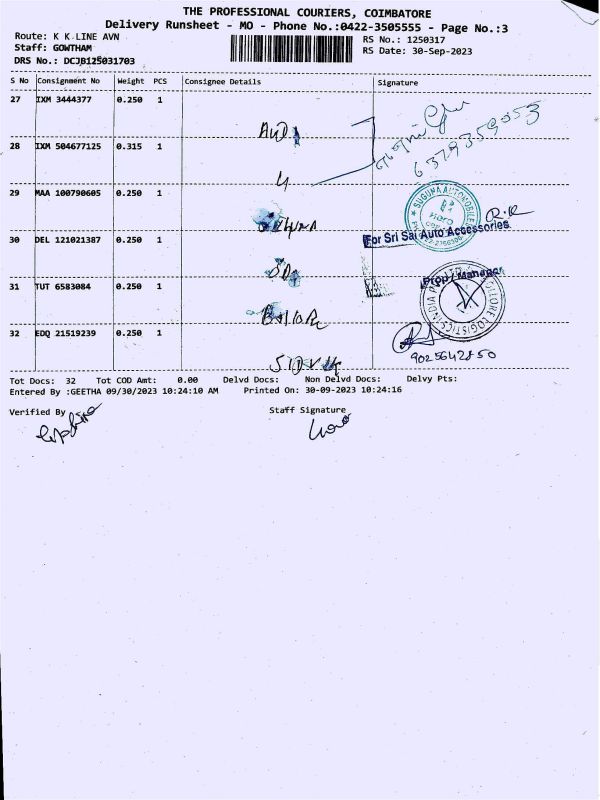 THE PROFESSIONAL COURIERS, COIMBATORE
Delivery Runsheet - MO - Phone No.:0422-3505555 - Page No.:3
Route: K K LINE AVN RS No.: 1250317
Staff: GOWTHAM RS Date: 30-Sep-2023
DRS No.: DCJB125031703
S No Consignment No Weight PCS Consignee Details Signature
27 IXM 3444377 0.250 1
AUDI
6379359053
28 IXM 504677125 0.315 1
29 MAA 100790605 0.250 1
SUGUNA AUTOMOBILE
30 DEL 121021387 0.250 1
For Sri Sai Auto Accessories
31 TUT 6583084 0.250 1
Prop / Manager
LOGISTICS INDIA
32 EDQ 21519239 0.250 1
9025642850
Tot Docs: 32 Tot COD Amt: 0.00 Delvd Docs: Non Delvd Docs: Delvy Pts:
Entered By :GEETHA 09/30/2023 10:24:10 AM Printed On: 30-09-2023 10:24:16
Verified By Staff Signature